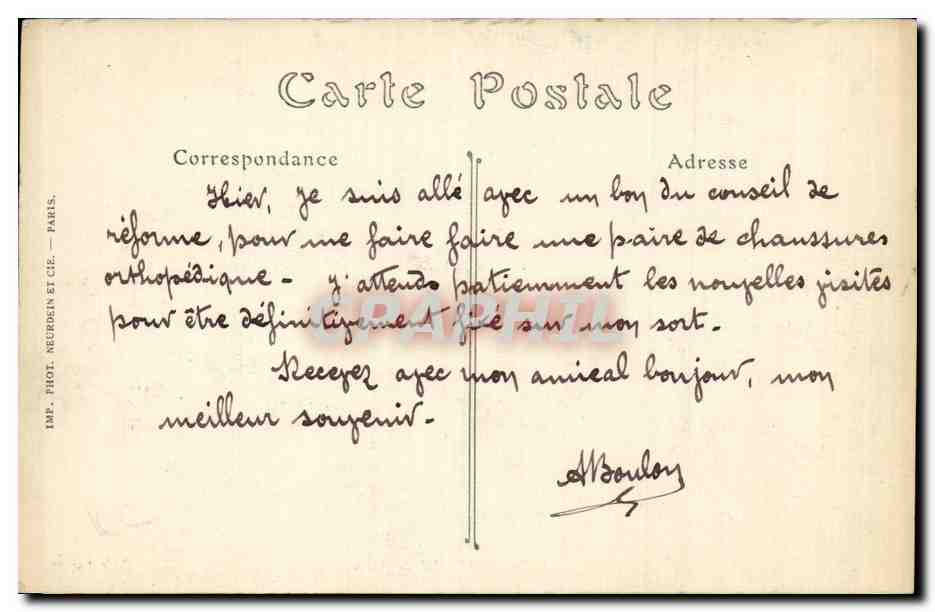 Carte Postale
Correspondance
Adresse
Hier, Je suis allé avec un bon du conseil de
réforme, pour me faire faire une paire de chaussures
orthopédique - J'attends patiemment les nouvelles visites
pour être définitivement fixé sur mon sort.
Recevez avec mon amical bonjour, mon
meilleur souvenir.
ABoulon
IMP. PHOT. NEURDEIN ET CIE. — PARIS.
CPAPHIL